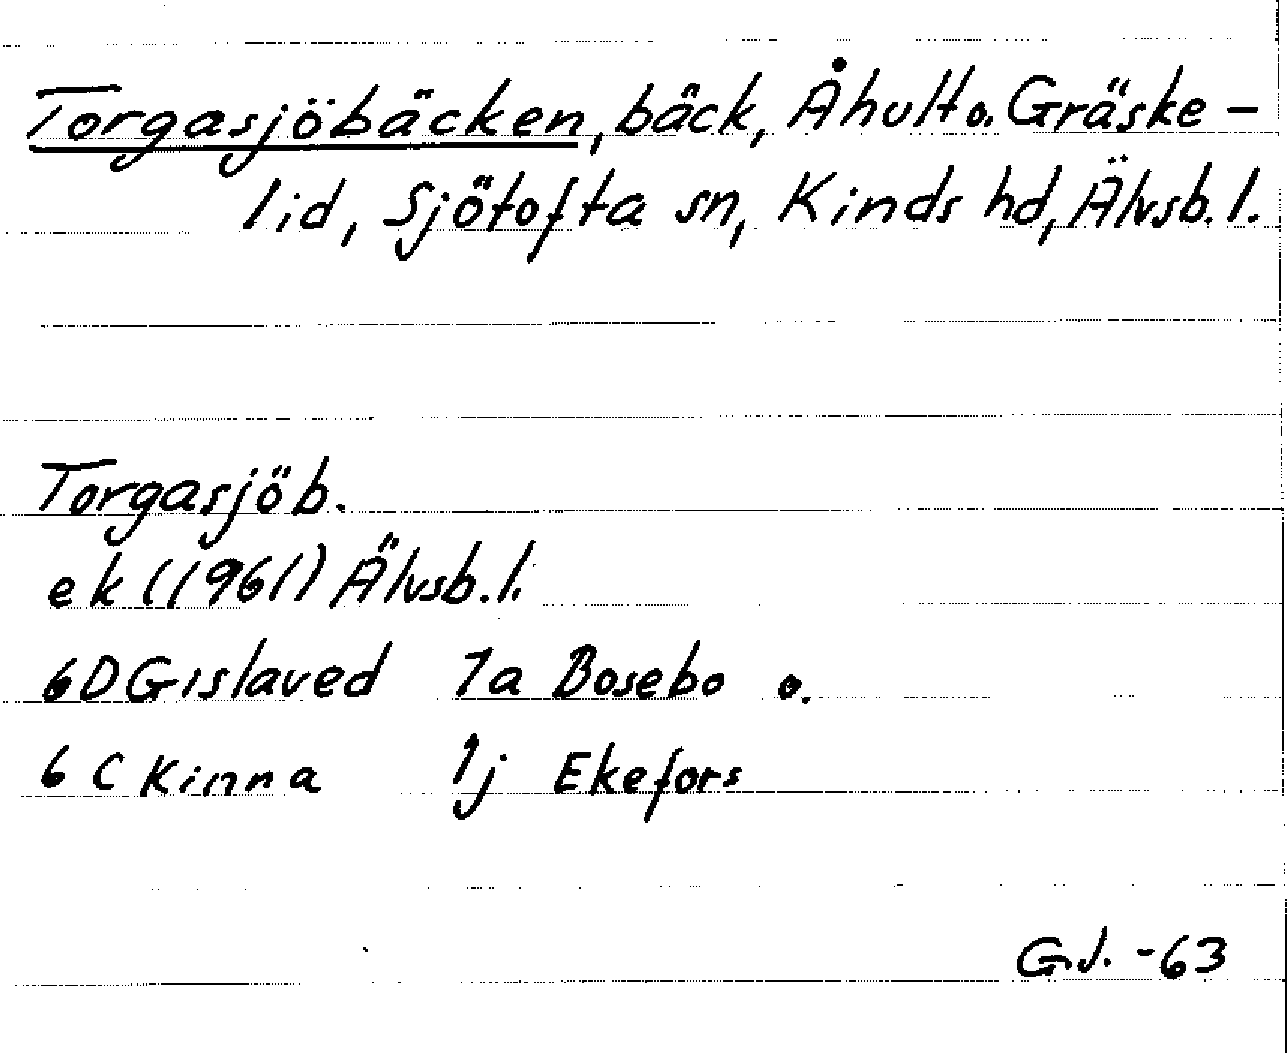 Torgasjöbäcken, bäck, Åhult o. Gräske-
lid, Sjötofta sn, Kinds hd, Älvsb. l.
Torgasjöb.
ek (1961) Älvsb. l.
6D Gislaved 7a Bosebo o.
6C Kinna 1j Ekefors
G.J. -63